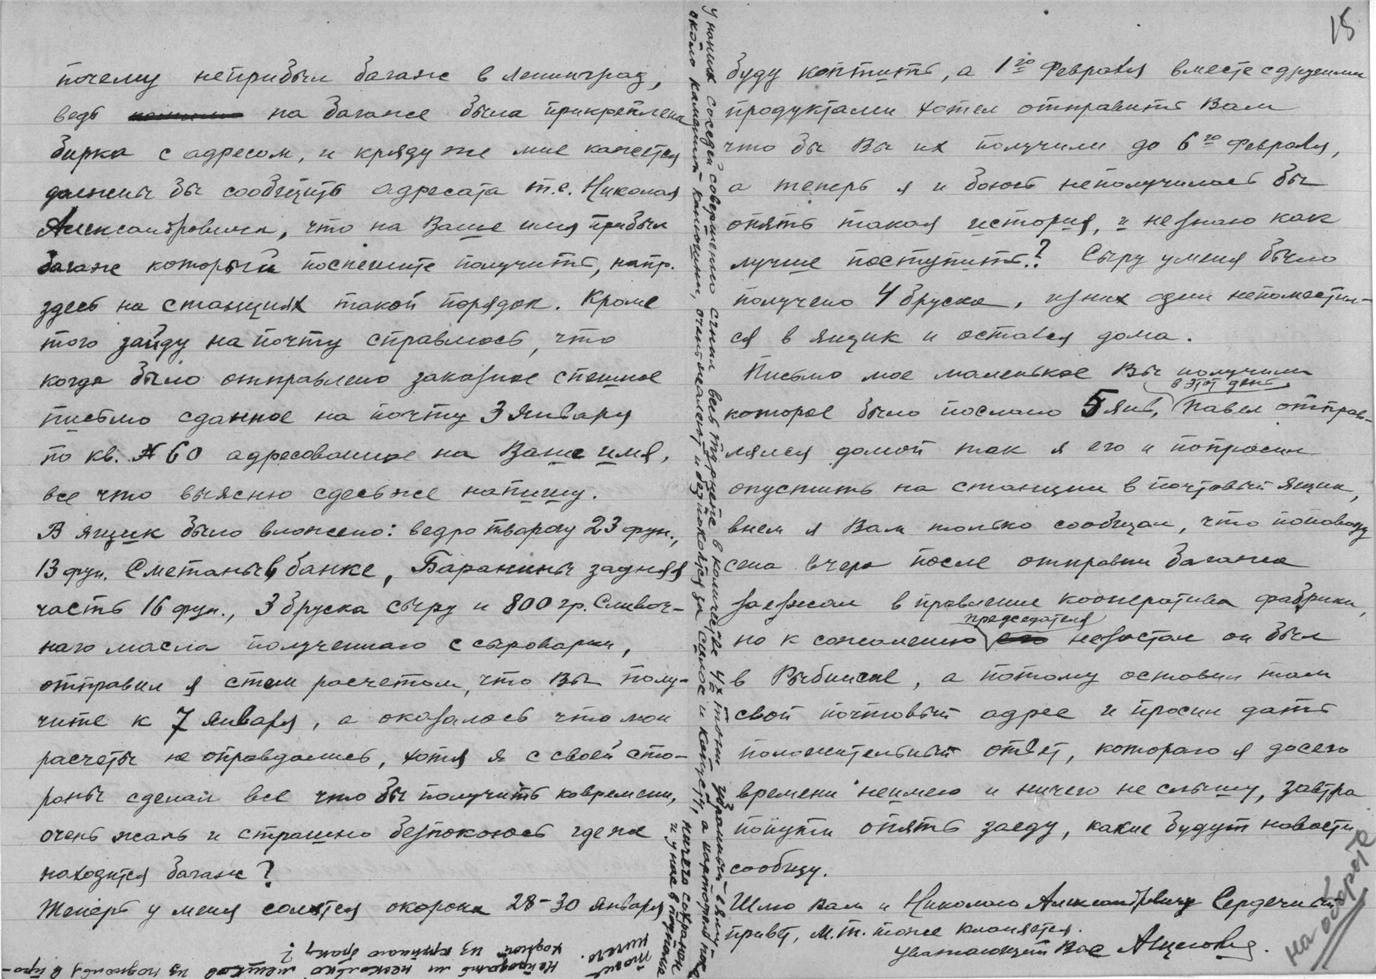 18
почему неприбыл багаж в Ленинград,
ведь на багаже была прикреплена
бирка с адресом, и кряду же мне кажется
должны бы сообщить адресата т.е. Николая
Александровича, что на Ваше имя прибыл
багаж который поспешите получить, напр.
здесь на станциях такой порядок. Кроме
того зайду на почту справлюсь, что
когда было отправлено заказное спешное
письмо сданное на почту 3 Января
по кв. № 60 адресованное на Ваше имя,
все что выясню сдесь же напишу.
В ящик было вложено: ведро творогу 23 фун.,
13 фун. Сметаны в банке, Баранины задняя
часть 16 фун., 3 бруска сыру и 800 гр. Сливоч-
наго масла полученнаго с сыроварни,
отправил я стем расчетом, что Вы полу-
чите к 7 Января, а оказалось что мои
расчеты не оправдались, хотя я с своей сто-
роны сделал все что бы получить ковремени,
очень жаль и страшно безпокоюсь где же
находится багаж?
Теперь у меня солятся окорока 28-30 Января
буду коптить, а 1го Февраля вместе сдругими
продуктами хотел отправить Вам
что бы Вы их получили до 6го Февраля,
а теперь я и боюсь неполучилось бы
опять такая история, и незнаю как
лучше поступить? Сыру уменя было
получено 4 бруска, изних один непоместил-
ся в ящик и остался дома.
Письмо мое маленькое Вы получили
в этот день
которое было послано 5 Янв, Павел отправ-
лялся домой так я его и попросил
опустить на станции в почтовый ящик,
внем я Вам только сообщал, что поповоду
сена вчера после отправки багажа
заезжал в правление кооператива фабрики,
председателя
но к сожалению незастал он был
в Рыбинске, а потому оставил там
свой почтовый адрес и просил дать
положительный ответ, котораго я досего
времени неимею и ничего не слышу, завтра
попути опять заеду, какие будут новости
сообщу.
Шлю Вам и Николаю Александровичу Сердечный
привет, М.т. тоже кланяется.
Уважающий Вас
на обороте
У наших соседей совершенно сгнил весь турнепс в количестве 4½ тонн